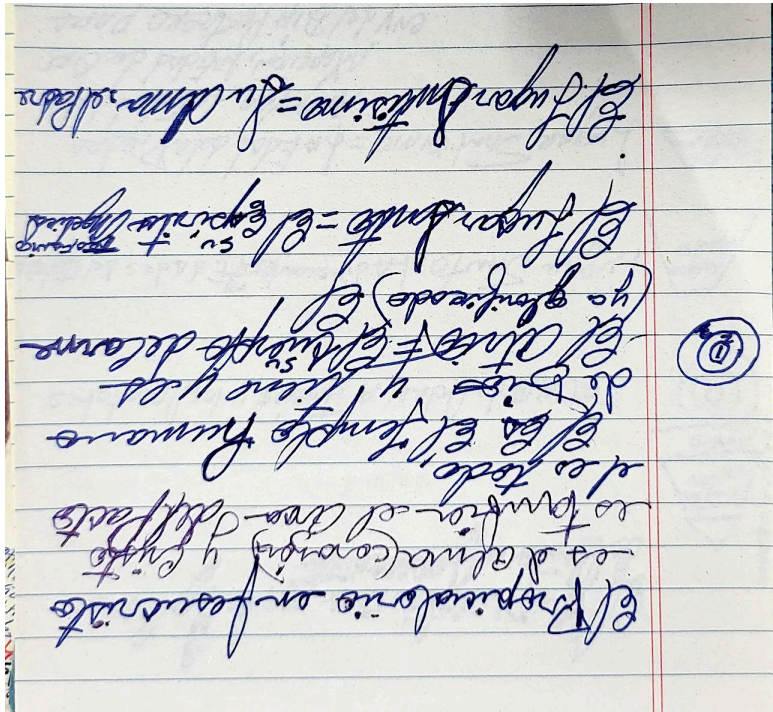 El Propiciatorio en Jesucristo
es el alma (corazón) y Cristo
es también el Arca del Pacto
el es todo,
El Es El Templo humano
de Dios y tiene y es
El atrio = El su cuerpo de carne
(ya glorificado) El
El Lugar Santo = El su Espíritu +
El Lugar Santísimo = Su Alma el Padre